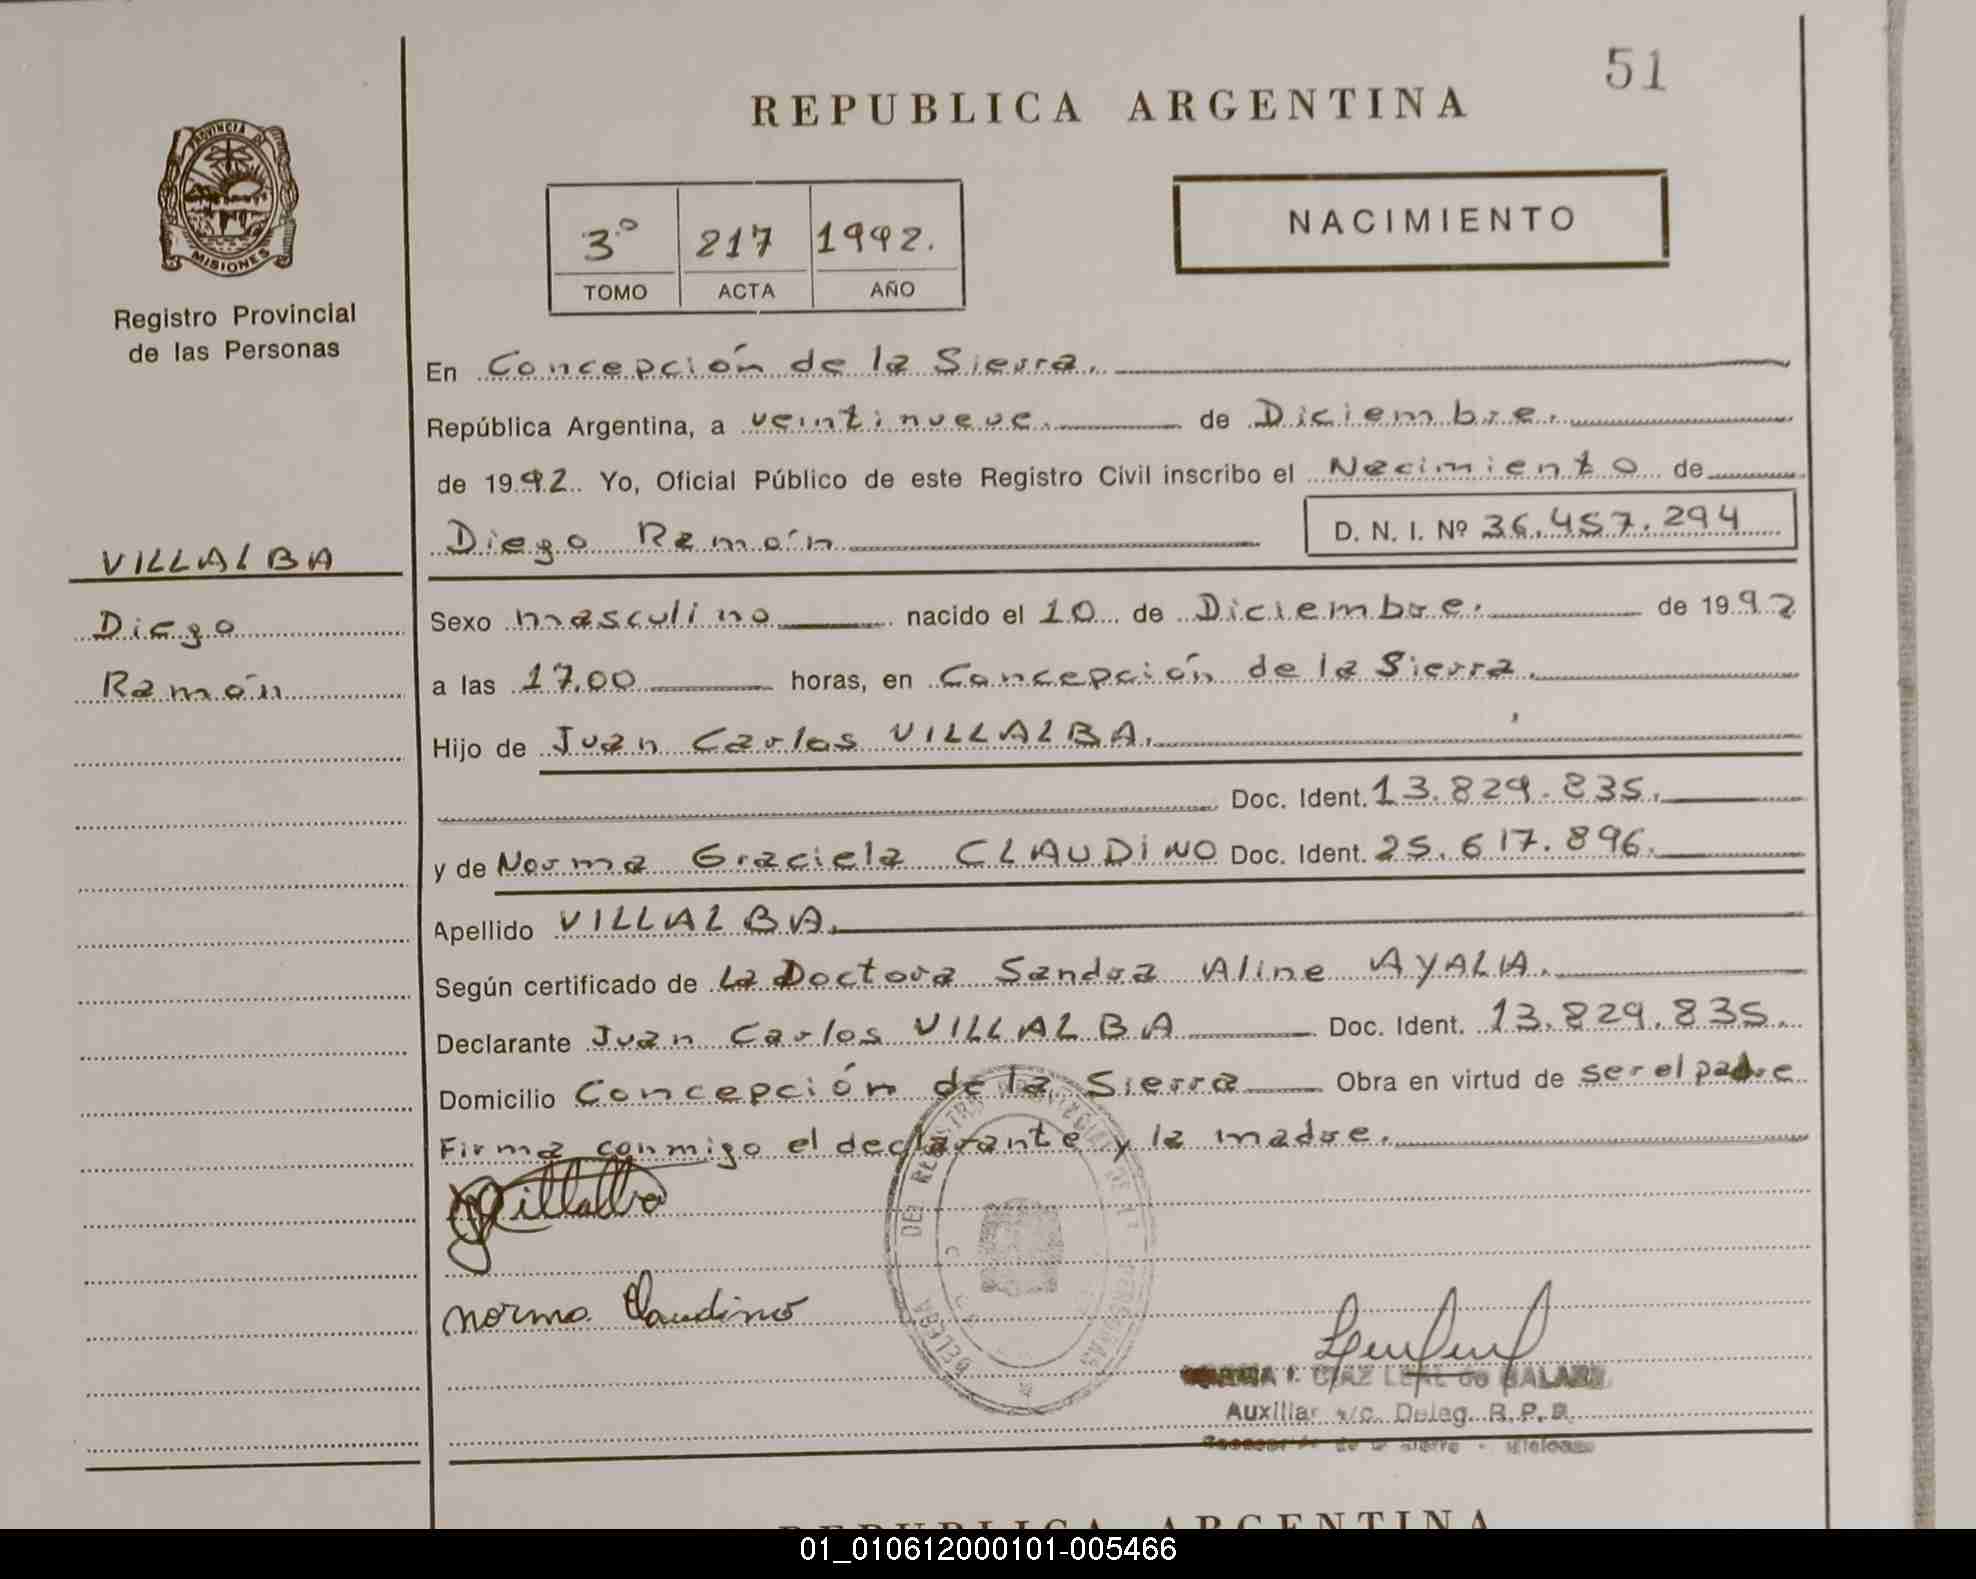 51
REPUBLICA ARGENTINA
PROVINCIA DE
MISIONES
Registro Provincial
de las Personas
3º 217 1992.
TOMO ACTA AÑO
NACIMIENTO
En Concepción de la Sierra.
República Argentina, a veintinueve. de Diciembre.
de 1992. Yo, Oficial Público de este Registro Civil inscribo el Nacimiento de
Diego Ramón D. N. I. Nº 36.457.294
VILLALBA
Diego
Ramón
Sexo masculino nacido el 10 de Diciembre. de 1992
a las 17.00 horas, en Concepción de la Sierra.
Hijo de Juan Carlos VILLALBA.
Doc. Ident. 13.829.835.
y de Norma Graciela CLAUDINO Doc. Ident. 25.617.896.
Apellido VILLALBA.
Según certificado de La Doctora Sandra Aline AYALA.
Declarante Juan Carlos VILLALBA Doc. Ident. 13.829.835.
Domicilio Concepción de la Sierra Obra en virtud de ser el padre
Firma conmigo el declarante y la madre.
Villalba
Norma Claudino
DEL REGISTRO PROVINCIAL DE LAS PERSONAS
DIAZ LEAL de
Auxiliar a/c. Deleg. R.P.P.
de la Sierra - Misiones
REPUBLICA ARGENTINA
01_010612000101-005466